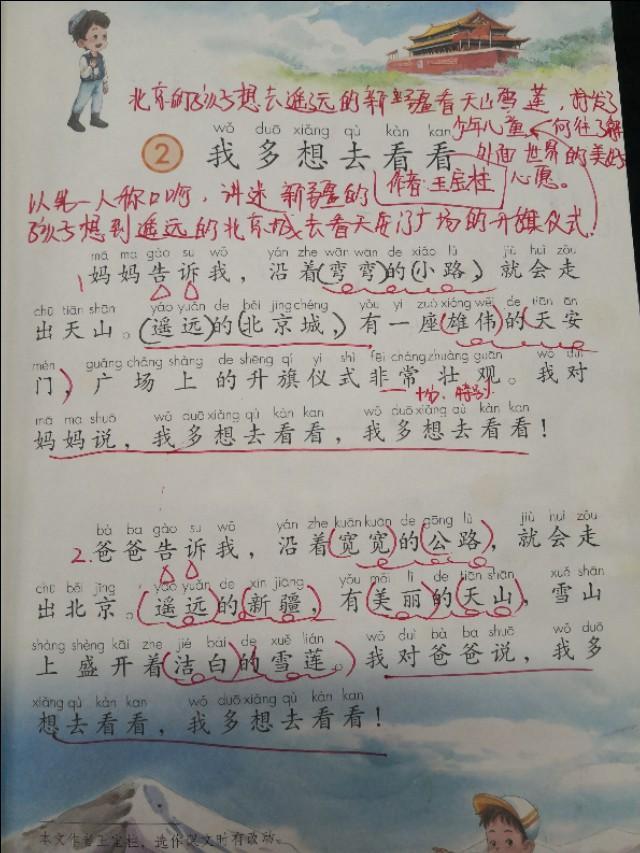 北京的孩子想去遥远的新疆看天山雪莲,抒发了
少年儿童向往了解
外面世界的美好
心愿。
wǒ duō xiǎng qù kàn kan
2 我多想去看看
作者:王宝柱
以第一人称口吻,讲述新疆的
孩子想到遥远的北京城去看天安门广场的升旗仪式.
mā ma gào su wǒ yán zhe wān wān de xiǎo lù jiù huì zǒu
1 妈妈告诉我,沿着(弯弯)的(小路),就会走
chū tiān shān yáo yuǎn de běi jīng chéng yǒu yí zuò xióng wěi de tiān ān
出天山。(遥远)的(北京城,)有一座(雄伟)的(天安
mén guǎng chǎng shàng de shēng qí yí shì fēi cháng zhuàng guān wǒ duì
门),广场上的升旗仪式非常壮观。我对
十分、特别
mā ma shuō wǒ duō xiǎng qù kàn kan wǒ duō xiǎng qù kàn kan
妈妈说,我多想去看看,我多想去看看!
bà ba gào su wǒ yán zhe kuān kuān de gōng lù jiù huì zǒu
2.爸爸告诉我,沿着(宽宽)的(公路),就会走
chū běi jīng yáo yuǎn de xīn jiāng yǒu měi lì de tiān shān xuě shān
出北京。(遥远)的(新疆,)有(美丽)的(天山),雪山
shàng shèng kāi zhe jié bái de xuě lián wǒ duì bà ba shuō wǒ duō
上盛开着(洁白)的(雪莲。)我对爸爸说,我多
xiǎng qù kàn kan wǒ duō xiǎng qù kàn kan
想去看看,我多想去看看!
本文作者王宝柱,选作课文时有改动。